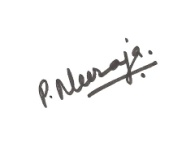 P. Neeraja.